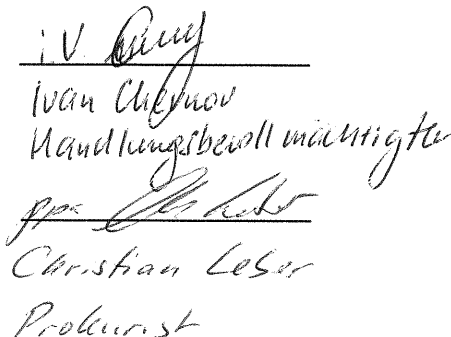 i.V.
Ivan Chernov
Handlungsbevollmächtigter
ppa
Christian Leber
Prokurist